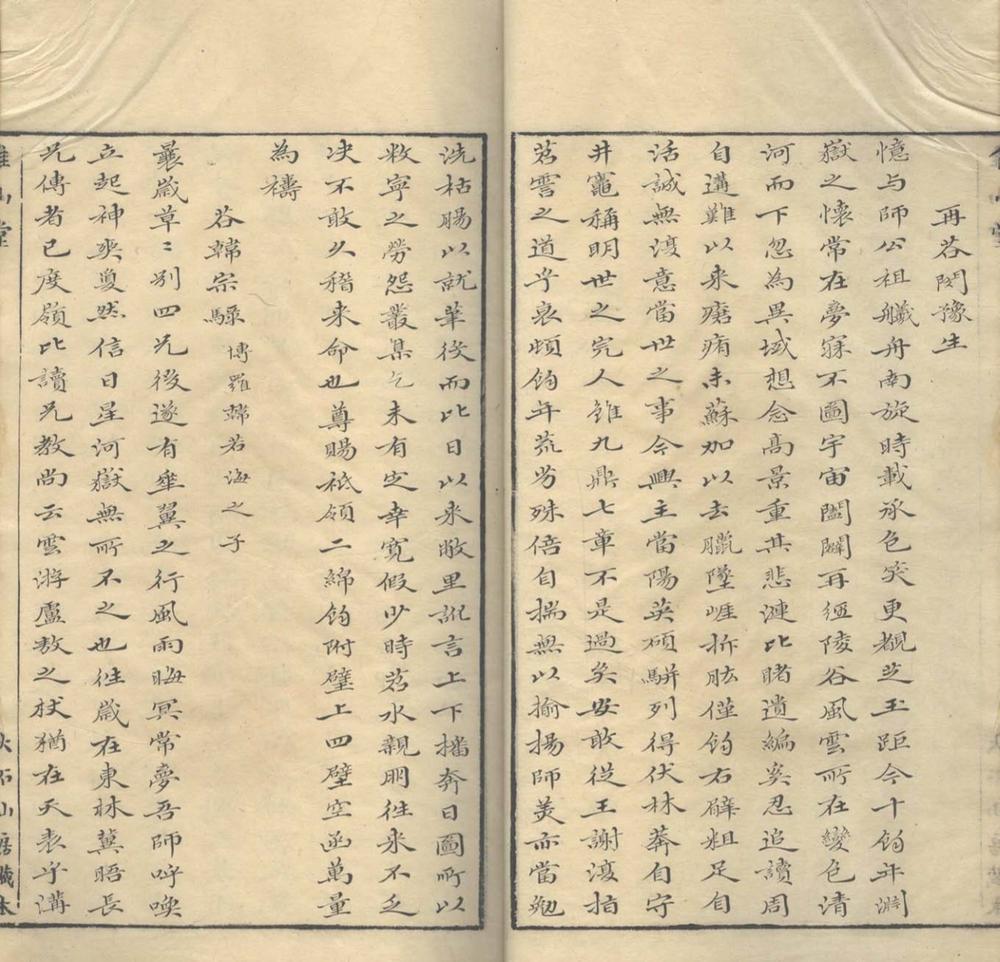 再荅閔豫生
憶与師公祖艤舟南旋時載承色笑更覩芝玉距今十餘年渊
嶽之懷常在夢寐不圖宇宙闔闢再經陵谷風雲所在變色清
河而下忽為異域想念高景重其悲漣比睹遺編奚忍追讀周
自遘難以来瘡痏未蘇加以去臘墜崕折肱僅餘右臂粗足自
活誠無復意當世之事今興主當陽英碩駢列得伏林莽自守
井竈稱明世之完人雖九鼎七章不是過矣安敢從王謝復指
苕霅之道乎衰頓餘年荒劣殊倍自揣無以揄揚師美而當勉
洗枯腸以就華役而比日以来敝里訛言上下擂奔日圖所以
敉寧之勞怨叢集乞未有定幸寛假少時苕水親朋往来不乏
决不敢久稽来命也尊賜祗領二綿餘附璧上四壁空函萬量
為禱
荅韓宗騄 博羅韓若海之子
曩歲草〻别四兄後遂有垂翼之行風雨晦冥常夢吾師呼喚
立起神爽夐然信日星河嶽無所不之也往歲在東林冀晤長
兄傳者已度嶺比讀兄教尚云雲游盧敖之杖猶在天表乎溝